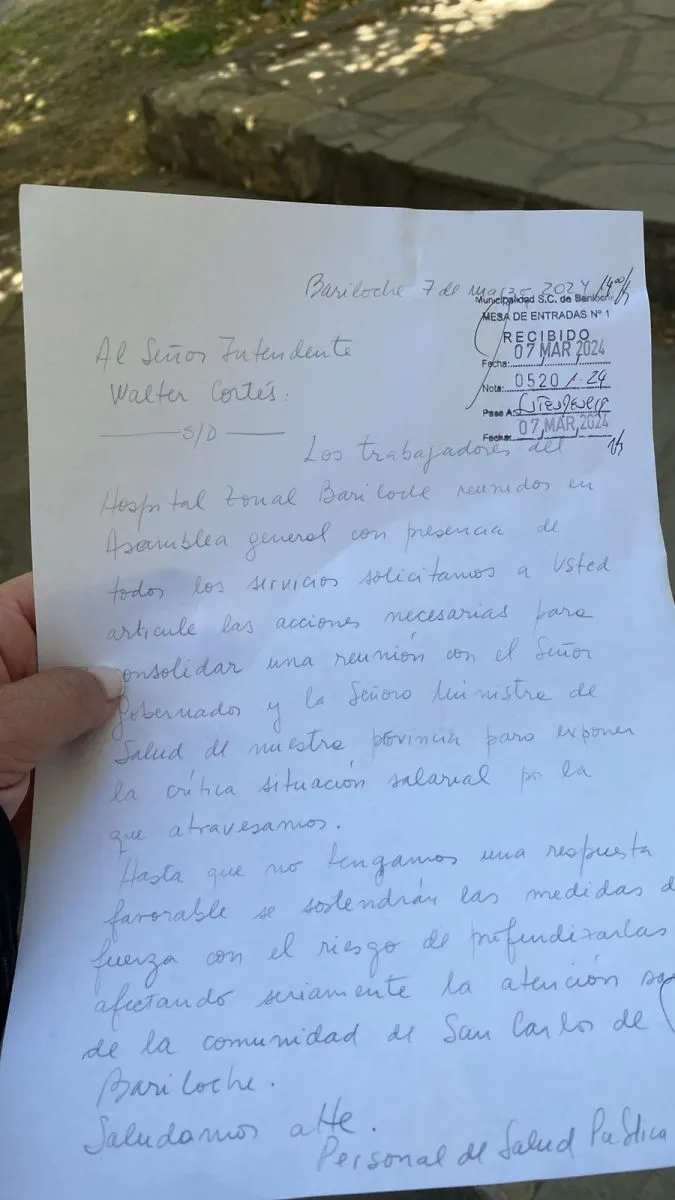 Bariloche 7 de marzo 2024 14:00h
Municipalidad S.C. de Bariloche
MESA DE ENTRADAS N° 1
RECIBIDO
Fecha: 07 MAR 2024
Nota: 0520 /-24
Pase A:
Fecha: 07 MAR, 2024
Al Señor Intendente
Walter Cortés:
S/D
Los trabajadores del
Hospital Zonal Bariloche reunidos en
Asamblea general con presencia de
todos los servicios solicitamos a Usted
articule las acciones necesarias para
consolidar una reunión con el Señor
gobernador y la Señora Ministra de
Salud de nuestra provincia para exponer
la crítica situación salarial por la
que atravesamos.
Hasta que no tengamos una respuesta
favorable se sostendrán las medidas d
fuerza con el riesgo de profundizarlas
afectando seriamente la atención
de la comunidad de San Carlos de
Bariloche.
Saludamos atte.
Personal de Salud Pública